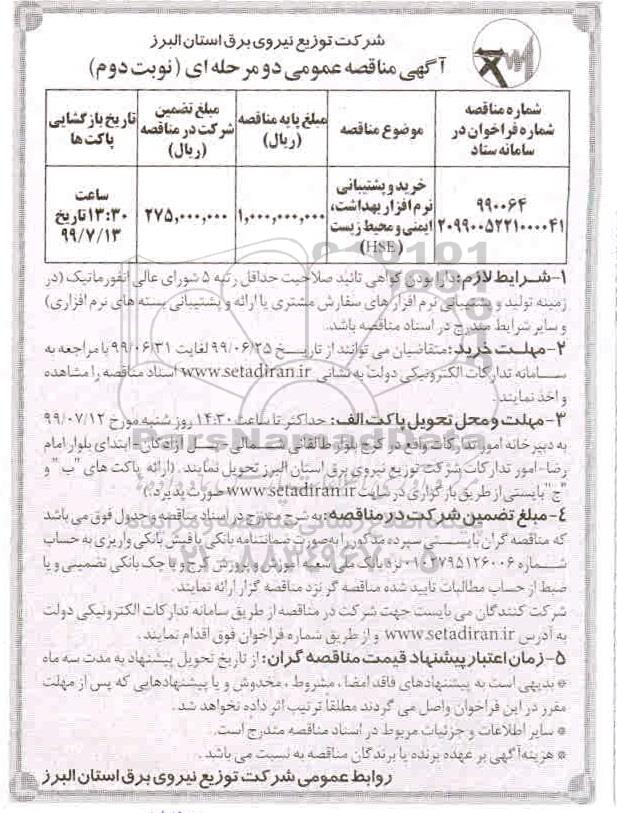 شرکت توزیع نیروی برق استان البرز
آگهی مناقصه عمومی دو مرحله ای (نوبت دوم)
شماره مناقصه
شماره فراخوان در
سامانه ستاد
موضوع مناقصه
مبلغ پایه مناقصه
(ریال)
مبلغ تضمین
شرکت در مناقصه
(ریال)
تاریخ بازگشایی
پاکت ها
۹۹۰۰۶۴
۲۰۹۹۰۰۵۲۲۱۰۰۰۰۴۱
خرید و پشتیبانی
نرم افزار بهداشت،
ایمنی و محیط زیست
(HSE)
۱,۰۰۰,۰۰۰,۰۰۰
۲۷۵,۰۰۰,۰۰۰
ساعت
۱۳:۳۰ تاریخ
۹۹/۷/۱۳
۱-شرایط لازم: دارا بودن گواهی تائید صلاحیت حداقل رتبه ۵ شورای عالی انفورماتیک (در
زمینه تولید و پشتیبانی نرم افزارهای سفارش مشتری یا ارائه و پشتیبانی بسته های نرم افزاری)
و سایر شرایط مندرج در اسناد مناقصه باشد.
۲-مهلت خرید: متقاضیان می توانند از تاریخ ۹۹/۰۶/۲۵ لغایت ۹۹/۰۶/۳۱ با مراجعه به
سامانه تدارکات الکترونیکی دولت به نشانی www.setadiran.ir اسناد مناقصه را مشاهده
و اخذ نمایند.
۳-مهلت و محل تحویل پاکت الف: حداکثر تا ساعت ۱۴:۳۰ روز شنبه مورخ ۹۹/۰۷/۱۲
به دبیرخانه امور تدارکات واقع در کرج بلوار طالقانی شمالی آزادگان-ابتدای بلوار امام
رضا-امور تدارکات شرکت توزیع نیروی برق استان البرز تحویل نمایند. (ارائه پاکت های "ب" و
"ج" بایستی از طریق بارگزاری در سایت www.setadiran.ir صورت پذیرد.)
۴-مبلغ تضمین شرکت در مناقصه: به شرح مندرج در اسناد مناقصه و جدول فوق می باشد
که مناقصه گران بایستی سپرده مذکور را به صورت ضمانتنامه بانکی یا فیش بانکی واریزی به حساب
شماره ۰۱۰۲۷۹۵۱۲۶۰۰۶ نزد بانک ملی شعبه آموزش و پرورش کرج و یا چک بانکی تضمینی و یا
ضبط از حساب مطالبات تایید شده مناقصه گر نزد مناقصه گزار ارائه نمایند.
شرکت کنندگان می بایست جهت شرکت در مناقصه از طریق سامانه تدارکات الکترونیکی دولت
به آدرس www.setadiran.ir و از طریق شماره فراخوان فوق اقدام نمایند.
۵-زمان اعتبار پیشنهاد قیمت مناقصه گران: از تاریخ تحویل پیشنهاد به مدت سه ماه
* بدیهی است به پیشنهادهای فاقد امضا، مشروط، مخدوش و یا پیشنهادهایی که پس از مهلت
مقرر در این فراخوان واصل می گردند مطلقاً ترتیب اثر داده نخواهد شد.
* سایر اطلاعات و جزئیات مربوط در اسناد مناقصه مندرج است.
* هزینه آگهی بر عهده برنده یا برندگان مناقصه به نسبت می باشد.
روابط عمومی شرکت توزیع نیروی برق استان البرز